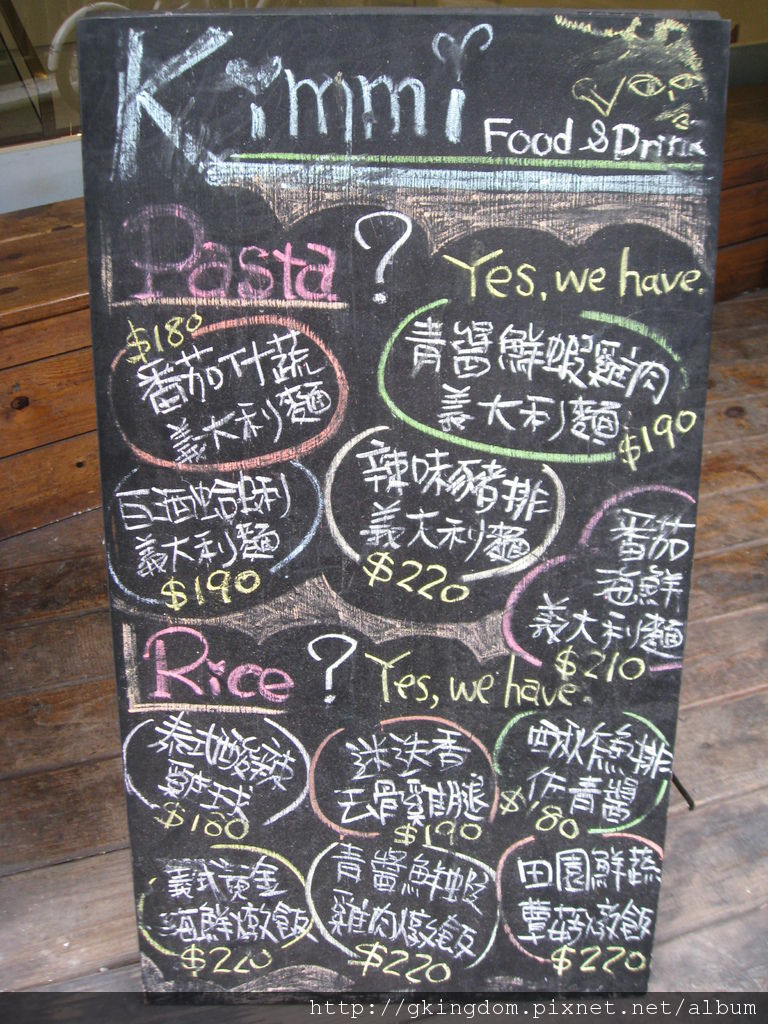 Kimmi
Food & Drink
Pasta ? Yes, we have.
$180
番茄什蔬
義大利麵
青醬鮮蝦雞肉
義大利麵
$190
白酒蛤蜊
義大利麵
$190
辣味豬排
義大利麵
$220
番茄
海鮮
義大利麵
$210
Rice ? Yes, we have.
泰式酸辣
雞球
$180
迷迭香
去骨雞腿
$190
魚排
青醬
$180
義式黃金
海鮮燉飯
$220
青醬鮮蝦
雞肉燉飯
$220
田園鮮蔬
蕈菇燉飯
$220
http://gkingdom.pixnet.net/album